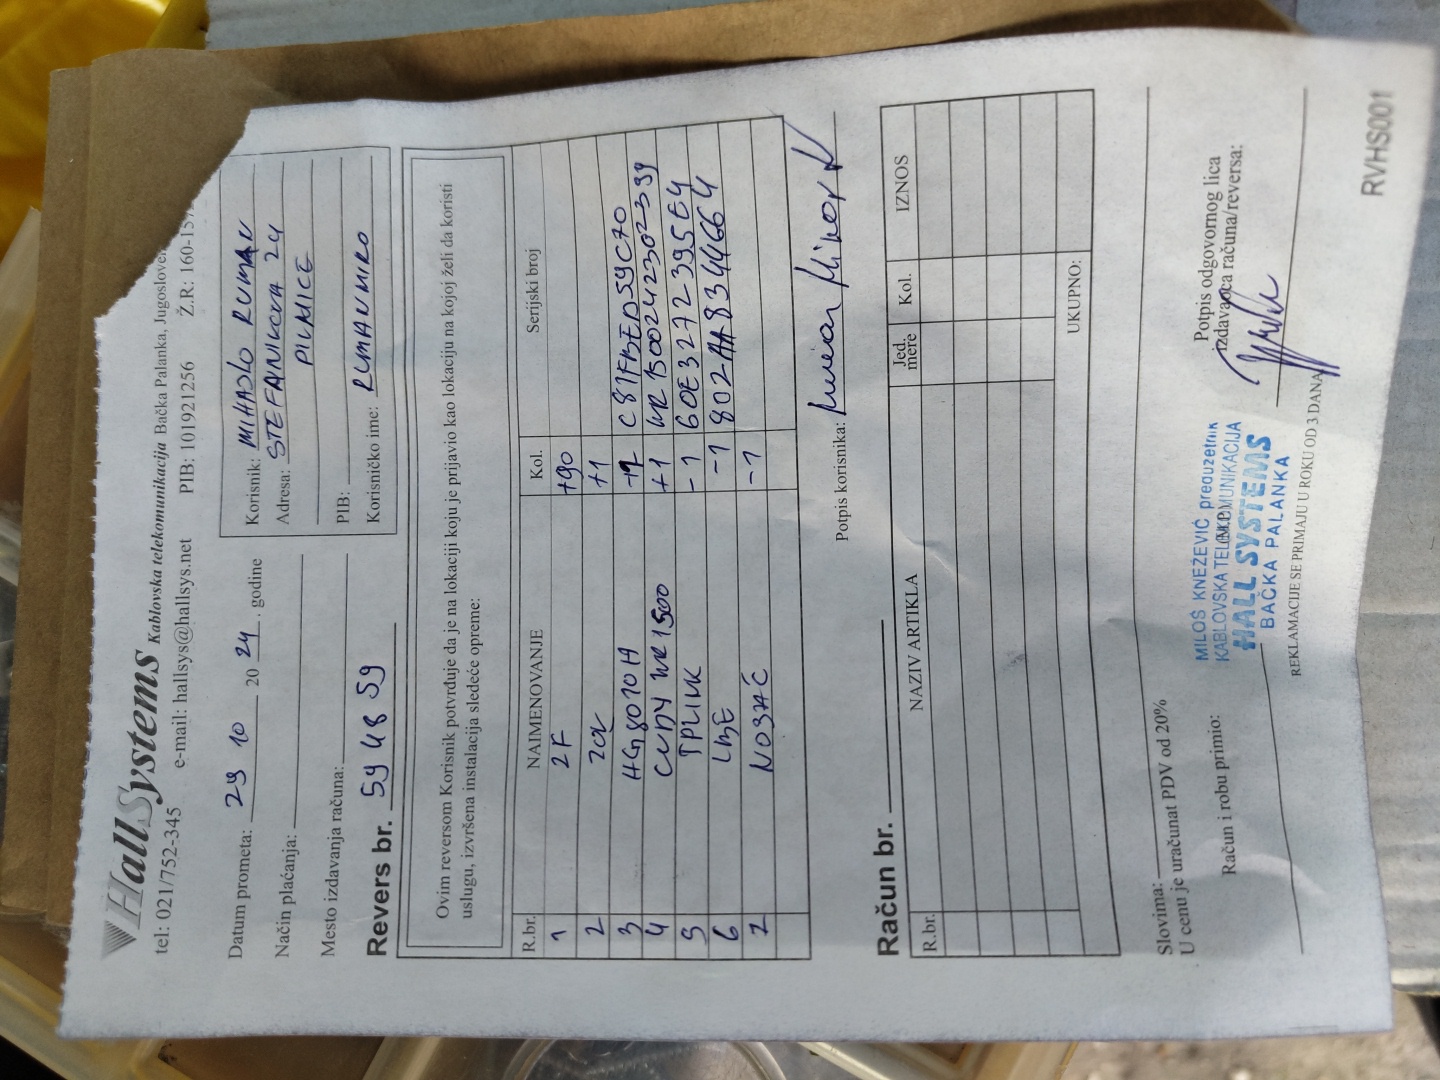 HallSystems Kablovska telekomunikacija Bačka Palanka, Jugoslove
tel: 021/752-345 e-mail: hallsys@hallsys.net PIB: 101921256 Ž.R: 160-157
Datum prometa: 29 10 2024. godine
Način plaćanja:
Mesto izdavanja računa:
Korisnik: MIHAJLO RUMAN
Adresa: STEFANIKOVA 24
PIVNICE
PIB:
Korisničko ime: RUMANMIRO
Revers br. 59 48 59
Ovim reversom Korisnik potvrđuje da je na lokaciji koju je prijavio kao lokaciju na kojoj želi da koristi
uslugu, izvršena instalacija sledeće opreme:
R.br. NAIMENOVANJE Kol. Serijski broj
1 2F +90
2 +1
3 HG8010H +1 C81FBED59C70
4 CUDY WR1500 +1 WR15002423023939
5 TPLINK -1 60E3272395E4
6 LBE -1 802AA8344664
7 NOSAČ -1
Potpis korisnika:
Račun br.
R.br. NAZIV ARTIKLA Jed. mere Kol. IZNOS
UKUPNO:
Slovima:
U cenu je uračunat PDV od 20%
Račun i robu primio:
(M.P.)
MILOŠ KNEŽEVIĆ preduzetnik
KABLOVSKA TELEKOMUNIKACIJA
HALL SYSTEMS
BAČKA PALANKA
Potpis odgovornog lica
izdavaoca računa/reversa:
REKLAMACIJE SE PRIMAJU U ROKU OD 3 DANA
RVHS001